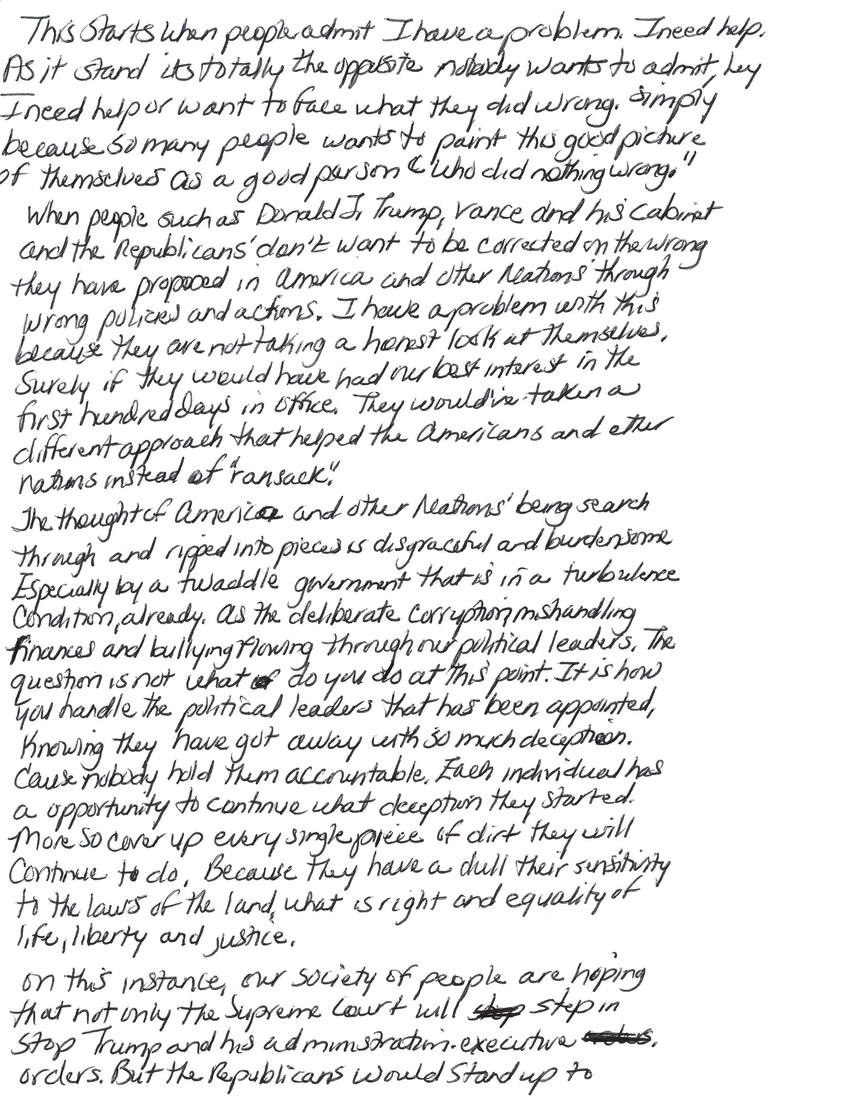 This Starts when people admit I have a problem. I need help.
As it stand its totally the opposite nobody wants to admit, hey
I need help or want to face what they did wrong. Simply
because so many people wants to paint this good picture
of themselves as a good person "who did nothing wrong."
When people such as Donald J. Trump, Vance and his cabinet
and the Republicans' don't want to be corrected on the wrong
they have proposed in America and other Nations' through
wrong policies and actions. I have a problem with this
because they are not taking a honest look at themselves.
Surely if they would have had our best interest in the
first hundred days in office. They would've taken a
different approach that helped the Americans and other
nations instead of "ransack."
The thought of America and other Nations' being search
through and ripped into pieces is disgraceful and burdensome
Especially by a twaddle government that is in a turbulence
Condition, already. As the deliberate corruption, mishandling
finances and bullying flowing through our political leaders. The
question is not what do you do at this point. It is how
you handle the political leaders that has been appointed,
Knowing they have got away with so much deception.
Cause nobody hold them accountable. Each individual has
a opportunity to continue what deception they started.
More so cover up every single piece of dirt they will
Continue to do. Because they have a dull their sensitivity
to the laws of the land, what is right and equality of
life, liberty and justice.
On this instance, our society of people are hoping
that not only the Supreme Court will step in
Stop Trump and his administration executive
orders. But the Republicans would stand up to